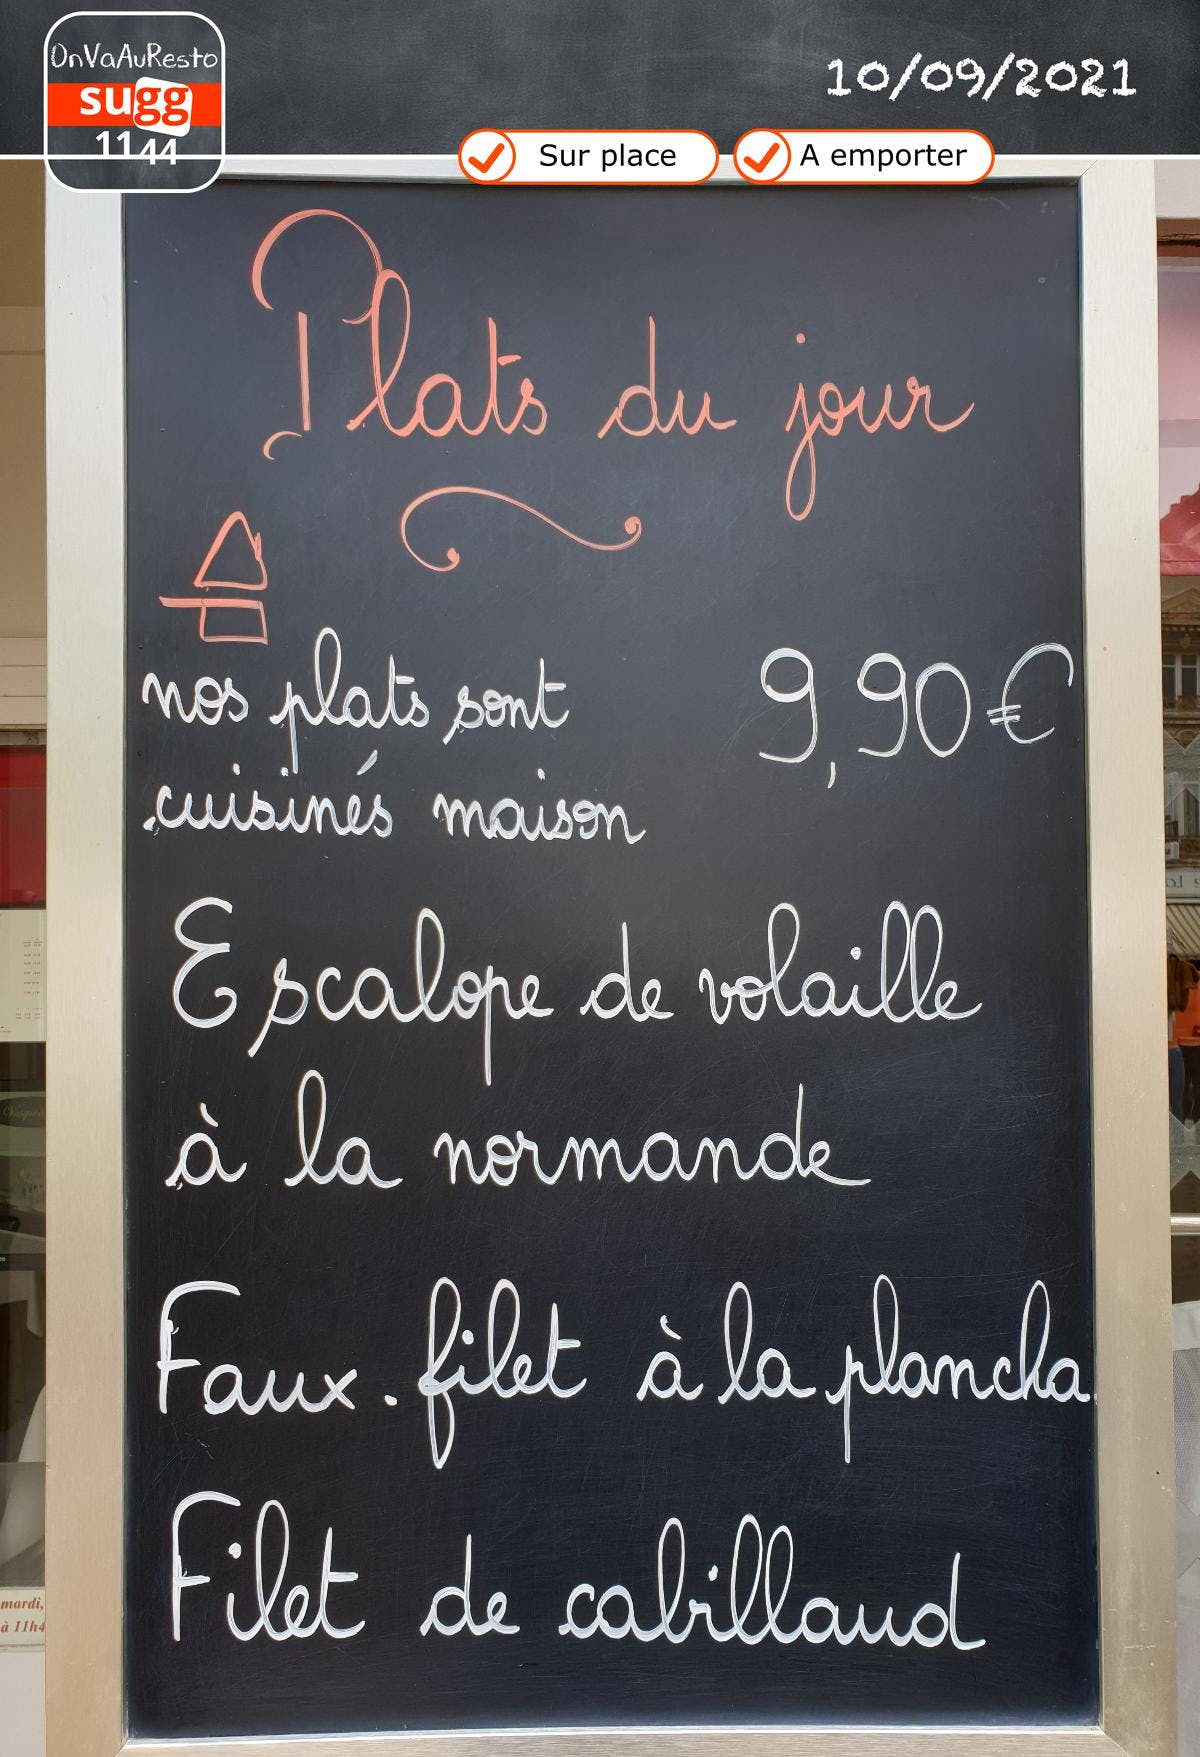 OnVaAuResto
sugg
1144
10/09/2021
Sur place
A emporter
Plats du jour
nos plats sont 9,90€
cuisinés maison
Escalope de volaille
à la normande
Faux-filet à la plancha
Filet de cabillaud
mardi,
à 11h4